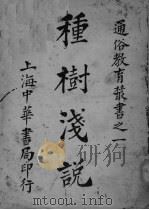 通俗教育叢書之一
種樹淺說
上海中華書局印行
www.sodocs.net